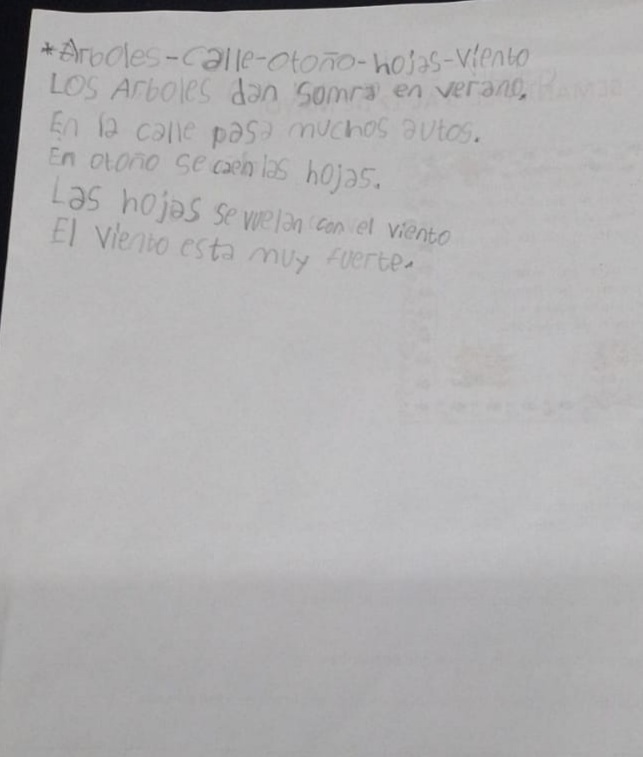 *Arboles-calle-otoño-hojas-viento
Los Arboles dan somra en verano.
En la calle pasa muchos autos.
En otoño se caen las hojas.
Las hojas se vuelan con el viento
El viento esta muy fuerte.